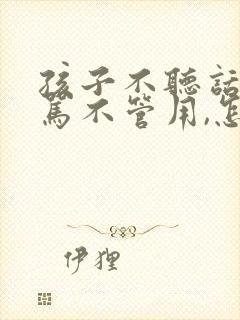 孩子不聽話
罵不管用,怎
伊狸